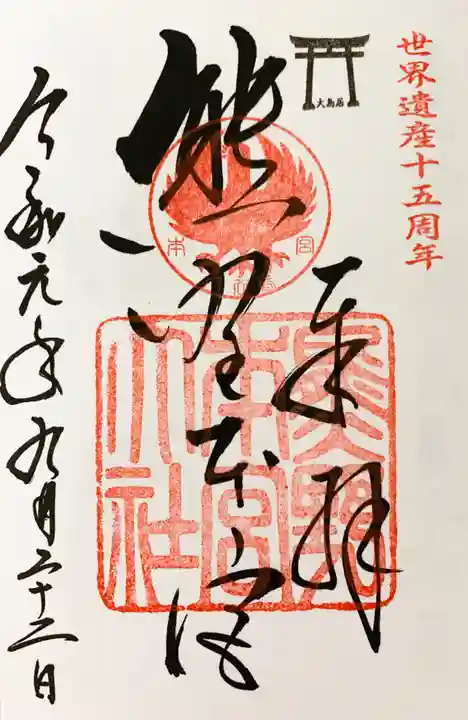 世界遺産十五周年
大鳥居
奉拝
熊野本宮
本宮
熊野
本宮
大社
令和元年九月二十二日